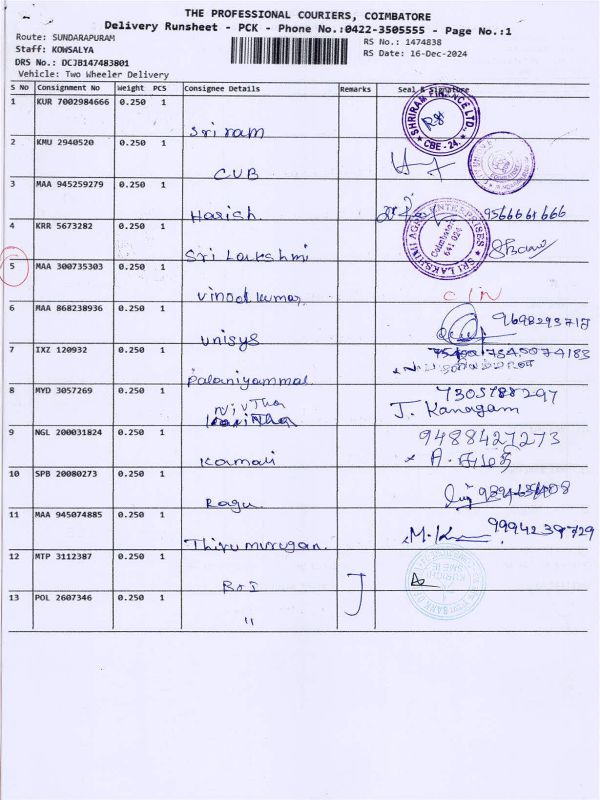 THE PROFESSIONAL COURIERS, COIMBATORE
Delivery Runsheet - PCK - Phone No.:0422-3505555 - Page No.:1
Route: SUNDARAPURAM
RS No.: 1474838
Staff: KOWSALYA
RS Date: 16-Dec-2024
DRS No.: DCJB147483801
Vehicle: Two Wheeler Delivery
S No Consignment No Weight PCS Consignee Details Remarks Seal & Signature
1 KUR 7002984666 0.250 1 Sriram SHRIRAM FINANCE LTD., * CBE - 24. *
2 KMU 2940520 0.250 1 CUB
3 MAA 945259279 0.250 1 Harish 9566661666
4 KRR 5673282 0.250 1 Sri Lakshmi SRI LAKSHMI AGRO ENTERPRISES Coimbatore 641 024
5 MAA 300735303 0.250 1 Vinoth kumar CIN
6 MAA 868238936 0.250 1 Unisys
7 IXZ 120932 0.250 1 Palaniyammal
8 MYD 3057269 0.250 1 Nivtha J. Kanagam
9 NGL 200031824 0.250 1 Kamali 9488427273
10 SPB 20080273 0.250 1 Ragu
11 MAA 945074885 0.250 1 Thirumurugan. 9994239729
12 MTP 3112387 0.250 1
13 POL 2607346 0.250 1 "